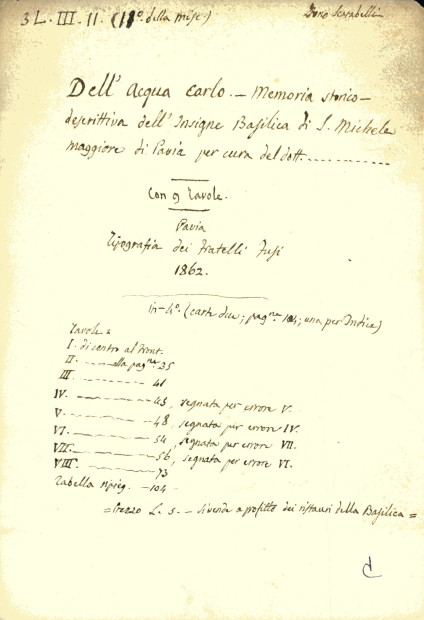 3 L. III. 11. (11º. della misc.)
Dono Scarabelli
Dell' Acqua Carlo. - Memoria storico-
descrittiva dell' Insigne Basilica di S. Michele
maggiore di Pavia per cura del dott. ............
Con 9 Tavole.
Pavia
Tipografia dei fratelli Fusi
1862.
in-4º. (carte due; pagne 104; una per Indice)
Tavole =
I. di contro al Front.
II. —— alla pagna 35
III —— 41
IV. —— 43, segnata per errore V.
V —— 48, segnata per errore IV.
VI. —— 54, segnata per errore VII.
VII. —— 56, segnata per errore VI.
VIII. —— 73
Tabella ripieg. — 104 —
= Prezzo L. 5. — si vende a profitto dei ristauri della Basilica =